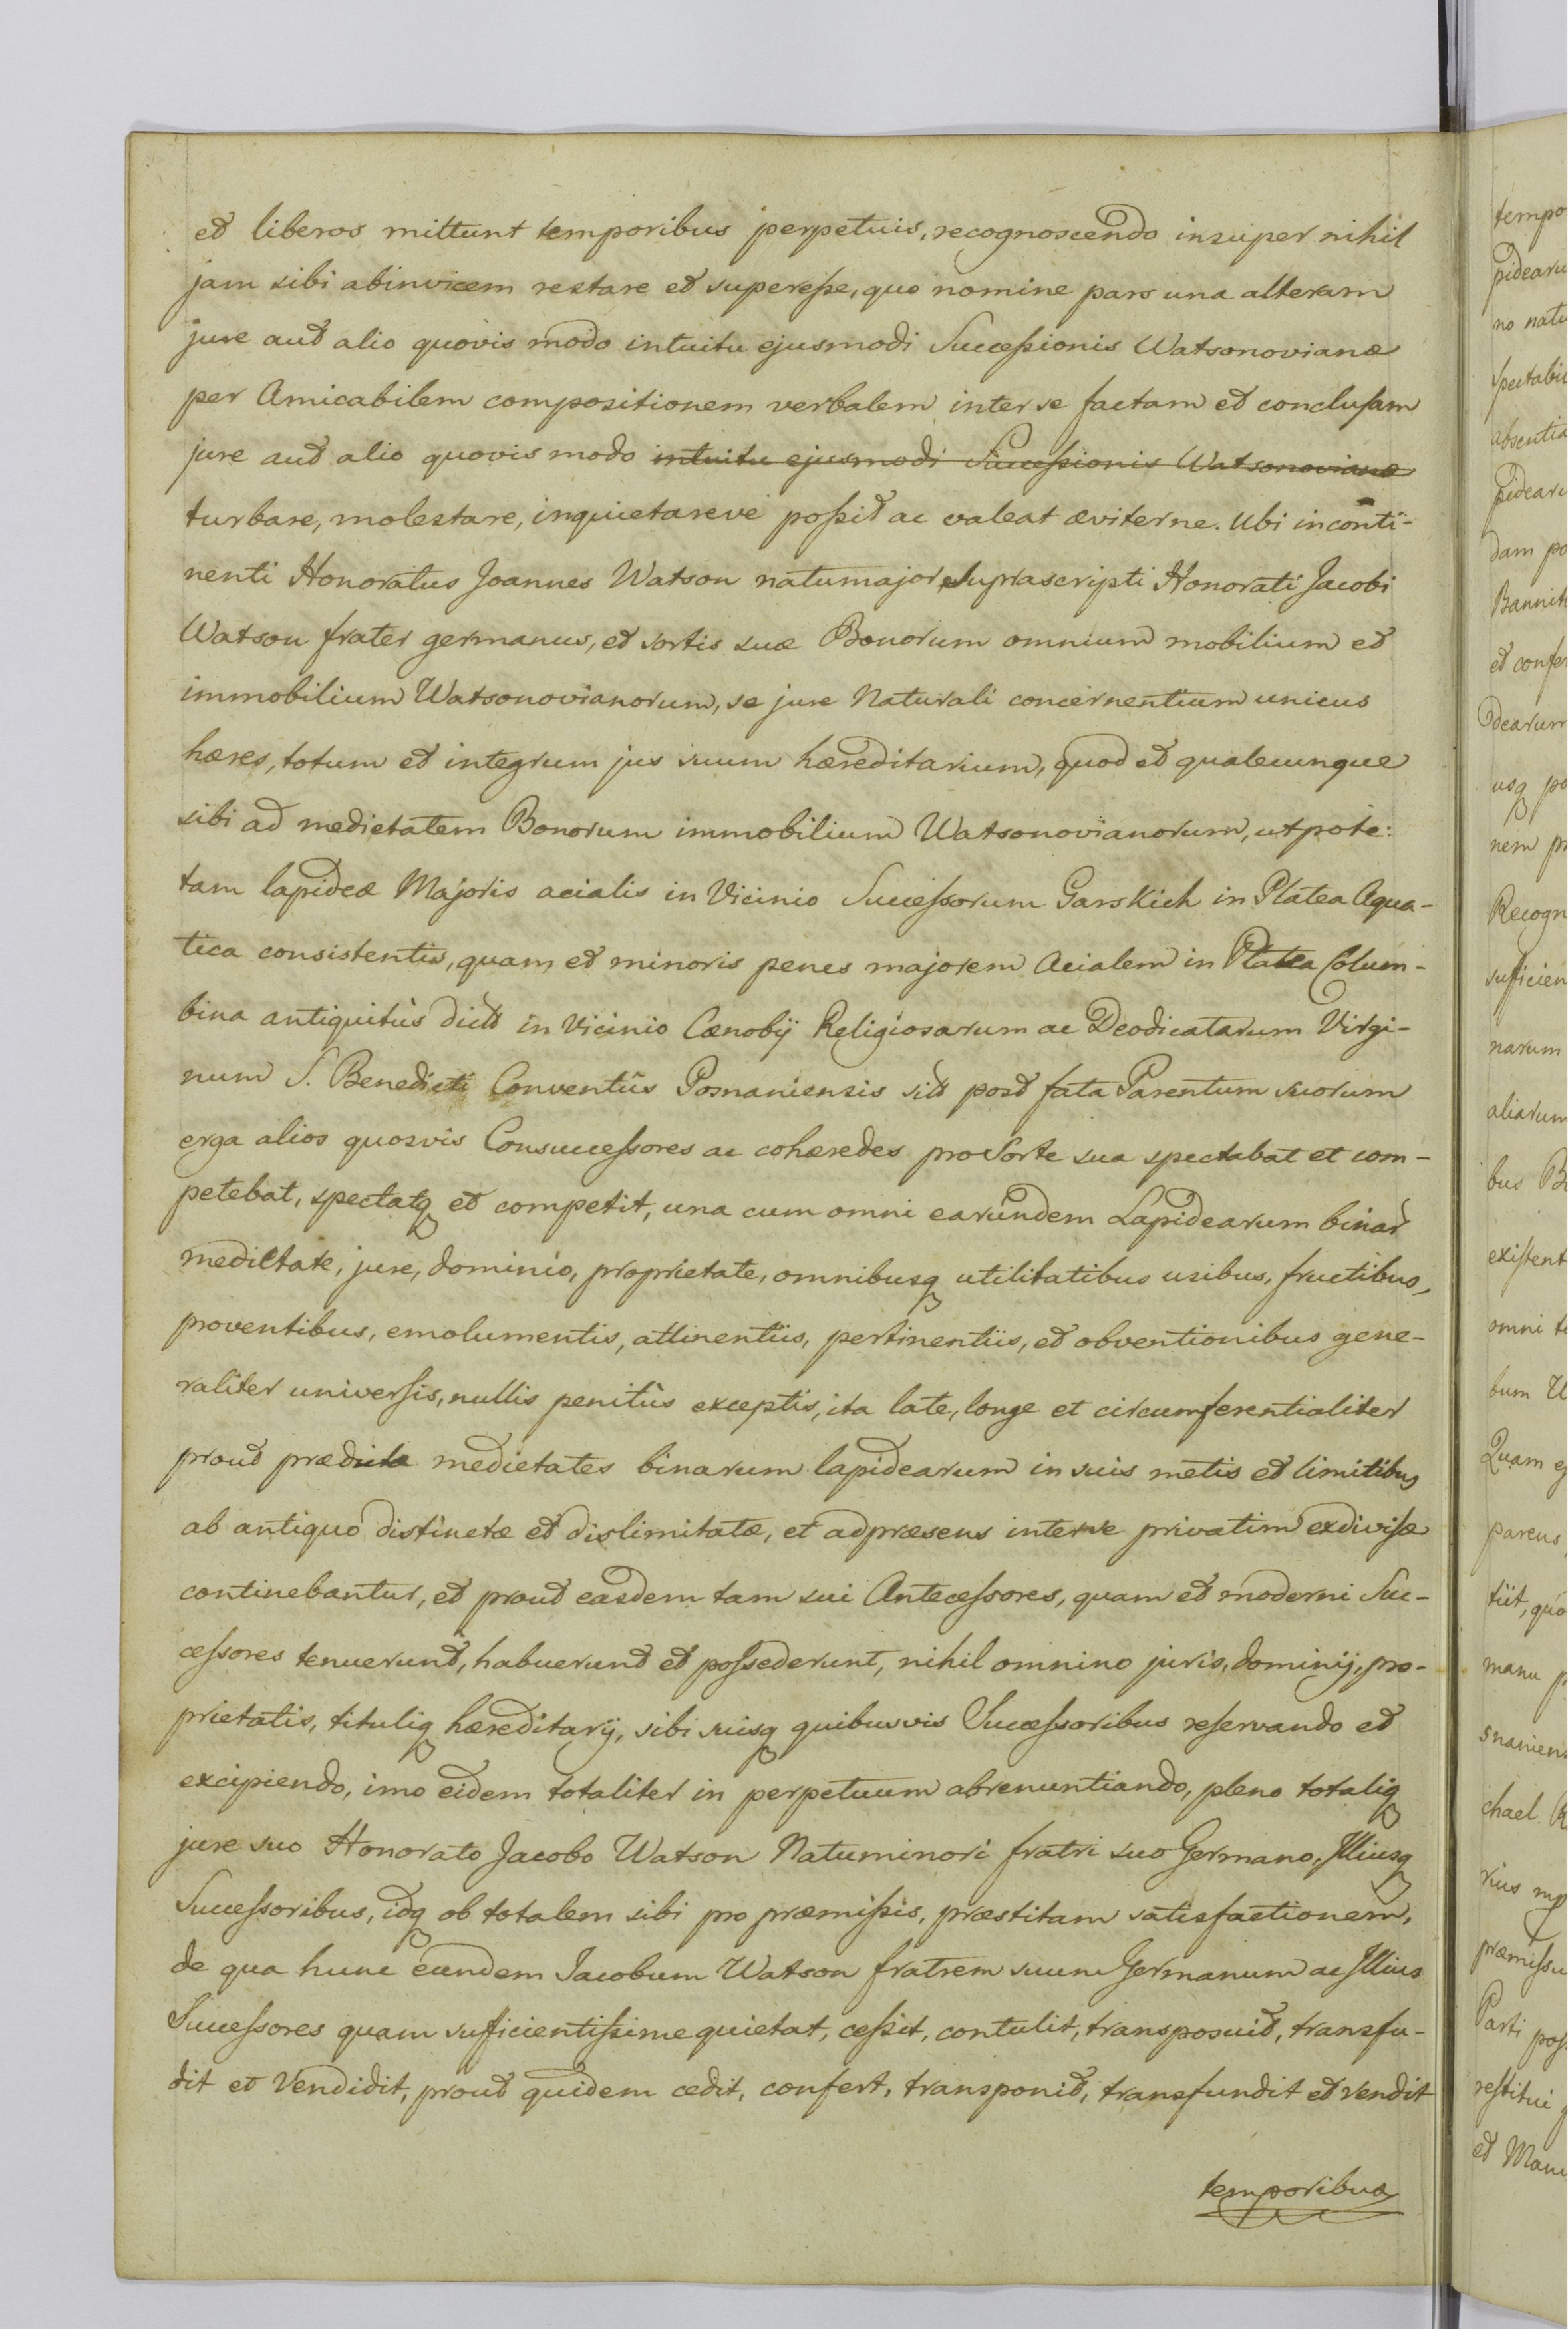 et liberos mittunt temporibus perpetuis, recognoscendo insuper nihil
jam sibi abinvicem restare et superesse, quo nomine pars una alteram
jure aut alio quovis modo intuitu ejusmodi Successionis Watsonovianæ
per Amicabilem compositionem verbalem inter se factam et conclusam
jure aut alio quovis modo intuitu ejusmodi Successionis Watsonovianæ
turbare, molestare, inquietareve possit ac valeat æviterne. Ubi inconti-
nenti Honoratus Joannes Watson natumajor, suprascripti Honorati Jacobi
Watson frater germanus, et sortis suæ Bonorum omnium mobilium et
immobilium Watsonovianorum, se jure Naturali concernentium unicus
hæres, totum et integrum jus suum hæreditarium, quod et qualecunque
sibi ad medietatem Bonorum immobilium Watsonovianorum, utpote:
tam lapideæ Majoris acialis in Vicinio Successorum Garskich in Platea Aqua-
tica consistentis, quam et minoris penes majorem Acialem in Platea Colum-
bina antiquitùs dictæ in Vicinio Cænobij Religiosarum ac Deodicatarum Virgi-
num S. Benedicti Conventûs Posnaniensis sitæ post fata Parentum suorum
erga alios quosvis Consuccessores ac cohæredes pro Sorte sua spectabat et com-
petebat, spectatq et competit, una cum omni earundem Lapidearum binar
medietate, jure, dominio, proprietate, omnibusq utilitatibus usibus, fructibus,
proventibus, emolumentis, attinentiis, pertinentiis, et obventionibus gene-
raliter universis, nullis penitùs exceptis, ita late, longe et circumferentialiter
prout prædictæ medietates binarum lapidearum in suis metis et limitibus
ab antiquo distinctæ et dislimitatæ, et adpræsens interse privatim exdivisæ
continebantur, et prout easdem tam sui Antecessores, quam et moderni Suc-
cessores tenuerunt, habuerunt et possederunt, nihil omnino juris, dominij, pro-
prietatis, tituliq hæreditarij, sibi suisq quibusvis Successoribus reservando et
excipiendo, imo eidem totaliter in perpetuum abrenuntiando, pleno totaliq
jure suo Honorato Jacobo Watson Natuminori fratri suo Germano, Illiusq
Successoribus, idq ob totalem sibi pro præmissis, præstitam satisfactionem,
de qua hunc eundem Jacobum Watson fratrem suum Germanum ac Illius
Successores quam sufficientissime quietat, cessit, contulit, transposuit, transfu-
dit et Vendidit, prout quidem cedit, confert, transponit, transfundit et vendit
temporibus
tempo
pidearu
no natu
spectabil
absentia
pidearu
dam po
Bannit
et confer
dearum
usq po
nem pr
Recogn
suficien
narum
aliarum
bus B
existent
omni te
bum W
Quam ej
parcus
tiit, quo
manu p
snaniens
chael R
rius mp
præmissu
Parti poss
restitui
et Manu